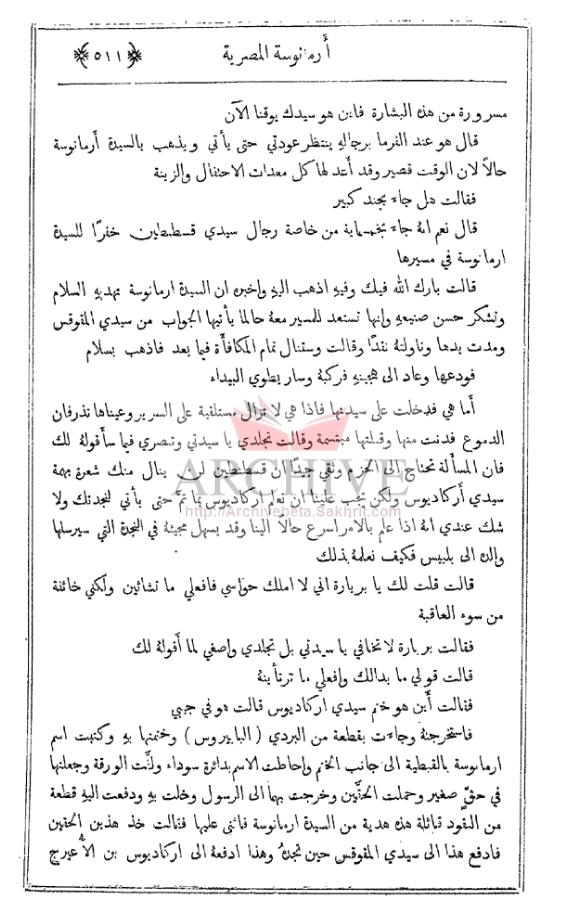 أرمانوسة المصرية
﴿٥١١﴾
مسرورة من هذه البشارة فاين هو سيدك يوقنا الآن
قال هو عند الفرما برجاله ينتظر عودتي حتى يأتي ويذهب بالسيدة أرمانوسة
حالاً لان الوقت قصير وقد أعد لها كل معدات الاحتفال والزينة
فقالت هل جاء بجند كبير
قال نعم انه جاء بخمسماية من خاصة رجال سيدي قسطنطين خفرًا للسيدة
ارمانوسة في مسيرها
قالت بارك الله فيك وفيه اذهب اليه واخبره ان السيدة ارمانوسة تهديه السلام
وتشكر حسن صنيعه وانها تستعد للمسير معه حالما يأتيها الجواب من سيدي المقوقس
ومدت يدها وناولته نقدًا وقالت وستنال تمام المكافأة فيما بعد فاذهب بسلام
فودعها وعاد الى هجينه فركبه وسار يطوي البيداء
أما هي فدخلت على سيدتها فاذا هي لا تزال مستلقية على السرير وعيناها تذرفان
الدموع فدنت منها وقبلتها مبتسمة وقالت تجلدي يا سيدتي وتبصري فيما سأقوله لك
فان المسألة تحتاج الى الحزم وثقي جيدًا ان قسطنطين لن ينال منك شعرة بهمة
سيدي أركاديوس ولكن يجب علينا ان نعلم اركاديوس بما تم حتى يأتي لنجدتك ولا
شك عندي انه اذا علم بالامر اسرع حالاً الينا وقد يسهل مجيئه في النجدة التي سيرسلها
والده الى بلبيس فكيف نعلمه بذلك
قالت قلت لك يا بربارة اني لا املك حواسي فافعلي ما تشائين ولكني خائفة
من سوء العاقبة
فقالت بربارة لا تخافي يا سيدتي بل تجلدي واصغي لما أقوله لك
قالت قولي ما بدالك وافعلي ما ترتأينه
فقالت أين هو ختم سيدي اركاديوس قالت هو في جيبي
فاستخرجته وجاءت بقطعة من البردي ( البابيروس ) وختمتها به وكتبت اسم
ارمانوسة بالقبطية الى جانب الختم واحاطت الاسم بدائرة سوداء ولفّت الورقة وجعلتها
في حقّ صغير وحملت الحقّين وخرجت بهما الى الرسول وخلت به ودفعت اليه قطعة
من النقود قائلة هذه هدية من السيدة ارمانوسة فاثنى عليها فقالت خذ هذين الحقين
فادفع هذا الى سيدي المقوقس حين تجده وهذا ادفعه الى اركاديوس بن الأعيرج
ARCHIVE
http://Archivebeta.Sakhrit.com